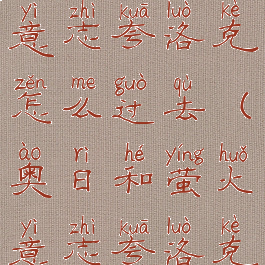 yì zhì kuā luò kè
意志夸洛克
zěn me guò qù
怎么过去（
ào rì hé yíng huǒ
奥日和萤火
yì zhì kuā luò kè
意志夸洛克